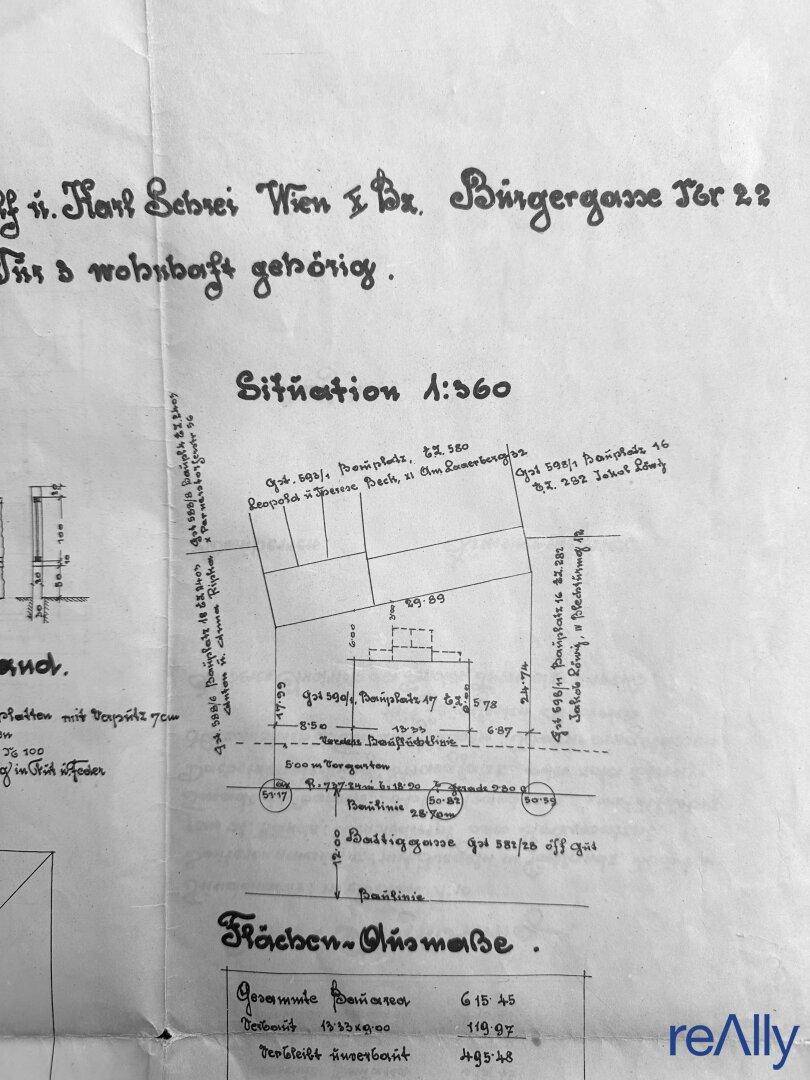 ü. Karl Schrei Wien X Bz. Bürgergasse Nr 22
Tür 3 wohnhaft gehörig.
Situation 1:360
Gst. 593/1 Bauplatz, EZ. 580
Leopold ü Therese Beck, XI Am Laaerberg 32
Gst 593/1 Bauplatz 16
EZ. 282 Jakob Löwy
Gst 588/8 Bauplatz EZ. 2403
X Pernerstorferstr 56
Gst. 588/6 Bauplatz 18 EZ 2403
Anton ü. Anna Ripka
Bauplatz 16 EZ. 282
Jakob Löwy, IV Blechturmg 12
29.89
3.00
6.00
17.99
24.74
Gst 590/1, Bauplatz 17 EZ: 578
8.50
13.33
6.87
Vordere Baufluchtlinie
5.00 m Vorgarten
R = 737.24 m
18.90
Gerade 9.80
51.17
50.82
50.59
Baulinie
28.70m
12.00
Battiggasse Gst 582/28 öff Gut
Baulinie
and.
platten mit Verputz 7cm
100
in Nut ü Feder
100
50
10
Flächen-Ausmaße.
Gesammte Bauarea 615.45
Verbaut 13.33x9.00 119.97
Verbleibt unverbaut 495.48
reAlly